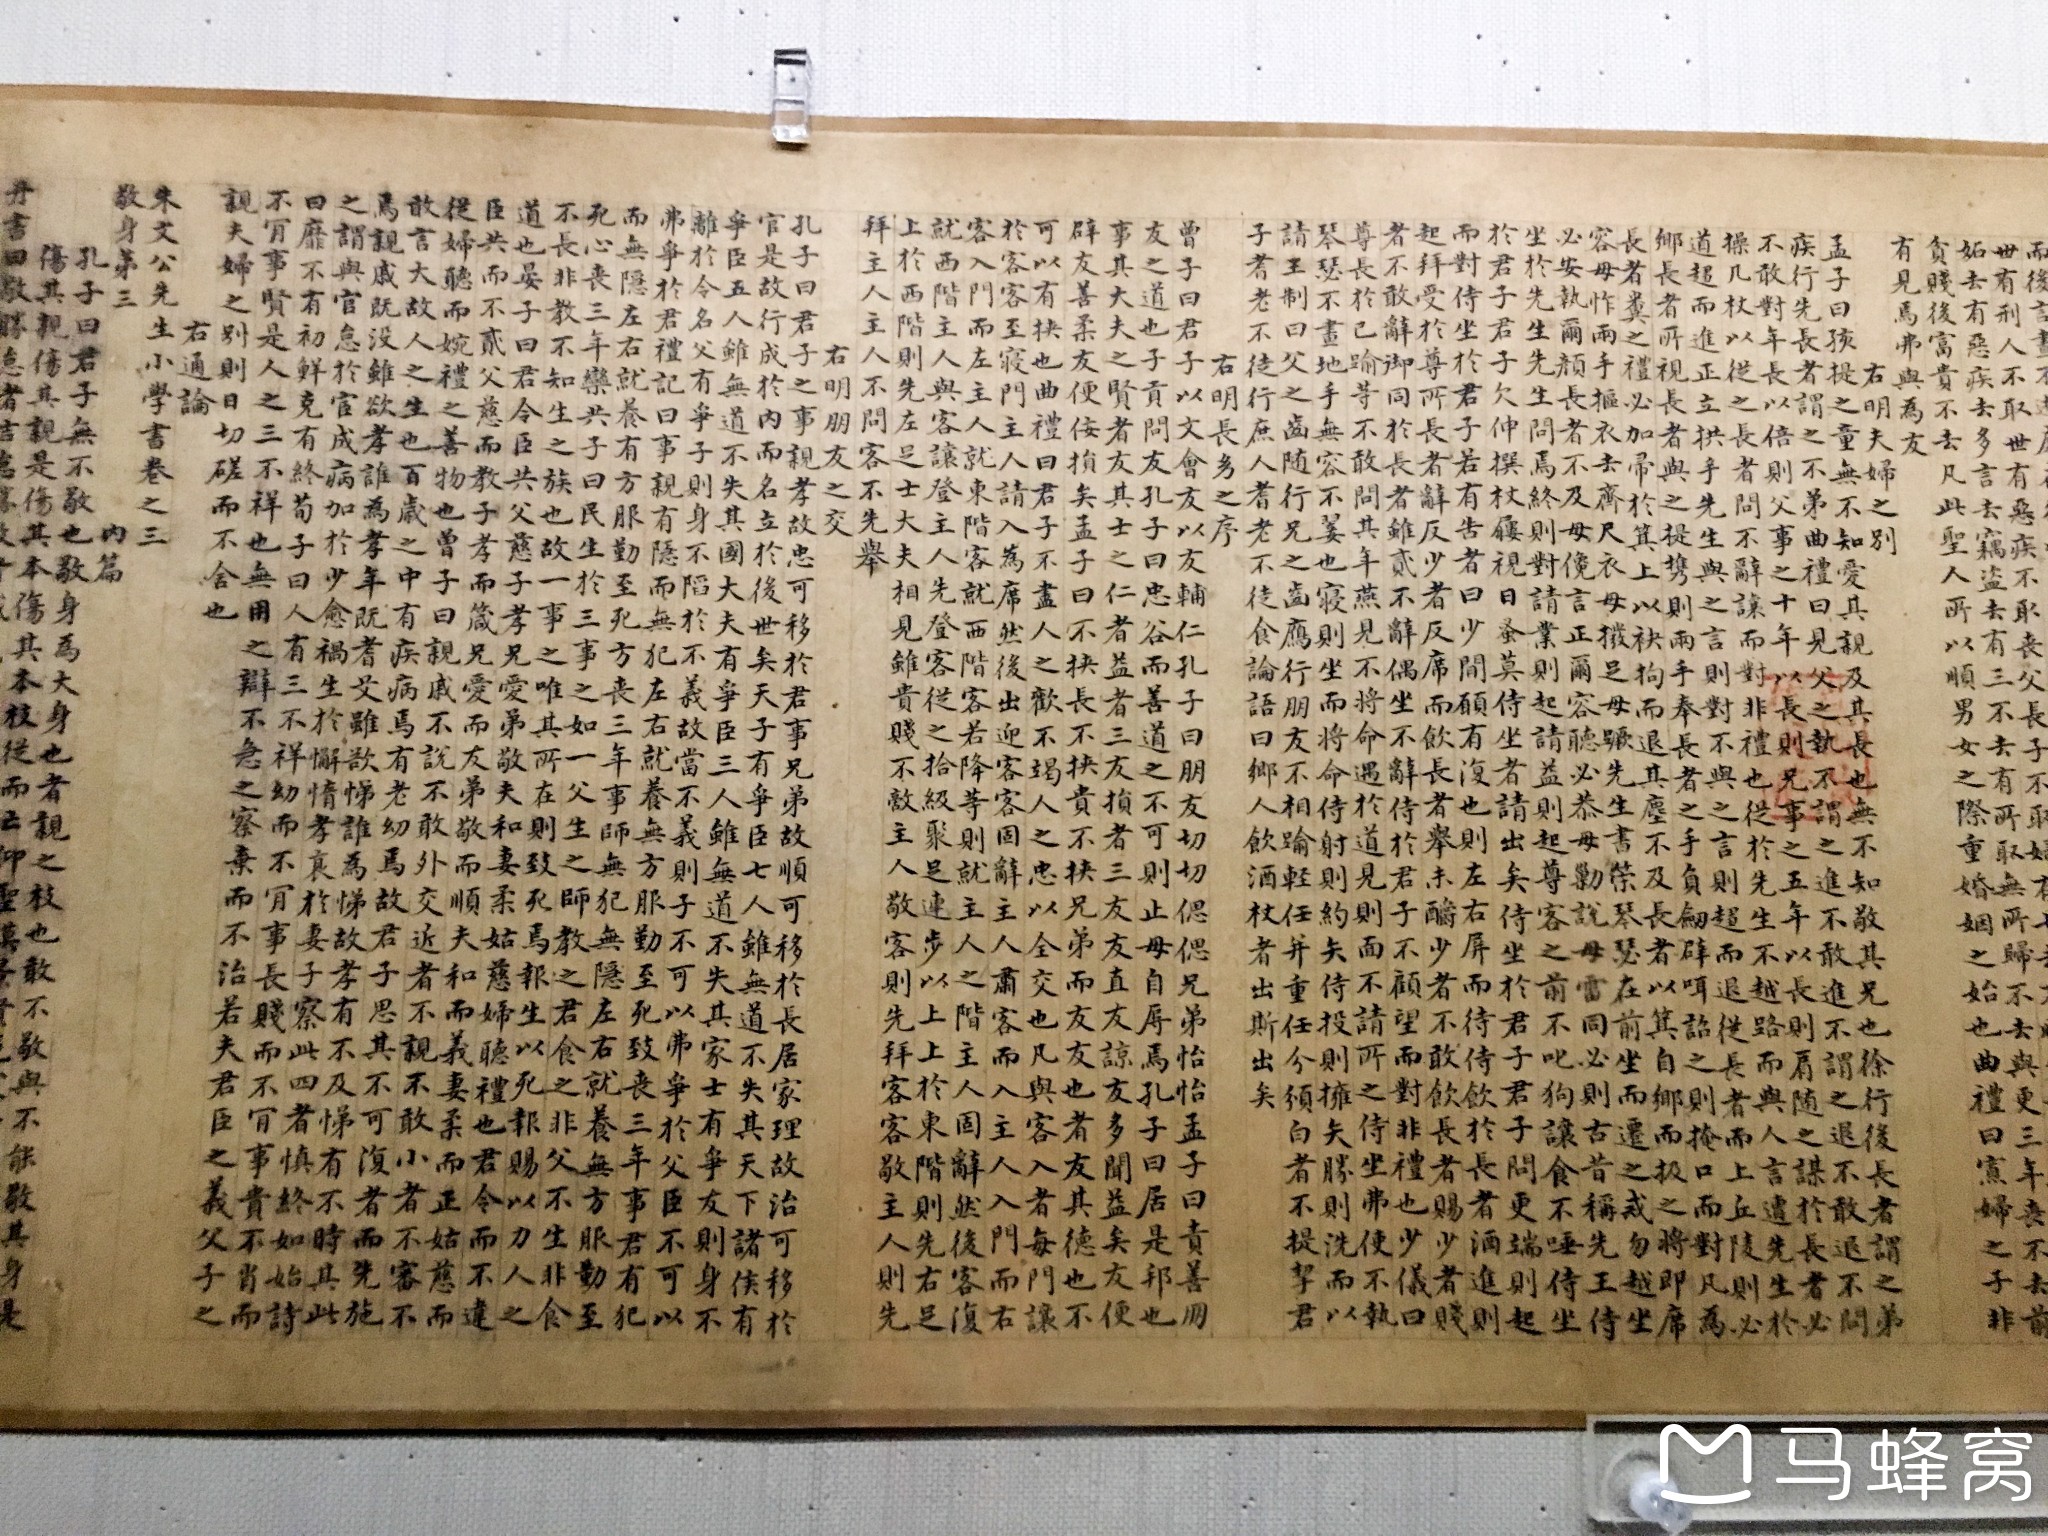 妬去有惡疾去多言去竊盜去有三不去有所取無所歸不去與更三年喪不去前
貧賤後富貴不去凡此聖人所以順男女之際重婚姻之始也曲禮曰寡婦之子非
有見焉弗與為友
右明夫婦之別
孟子曰孩提之童無不知愛其親及其長也無不知敬其兄也徐行後長者謂之弟
疾行先長者謂之不弟曲禮曰見父之執不謂之進不敢進不謂之退不敢退不問
不敢對年長以倍則父事之十年以長則兄事之五年以長則肩隨之謀於長者必
操几杖以從之長者問不辭讓而對非禮也從於先生不越路而與人言遭先生於
道趨而進正立拱手先生與之言則對不與之言則趨而退從長者而上丘陵則必
鄉長者所視長者與之提攜則兩手奉長者之手負劒辟咡詔之則掩口而對凡為
長者糞之禮必加帚於箕上以袂拘而退其塵不及長者以箕自鄉而扱之將即席
容毋怍兩手摳衣去齊尺衣毋撥足毋蹶先生書策琴瑟在前坐而遷之戒勿越坐
必安執爾顏長者不及毋儳言正爾容聽必恭毋勦說毋雷同必則古昔稱先王侍
坐於先生先生問焉終則對請業則起請益則起尊客之前不叱狗讓食不唾侍坐
於君子君子欠伸撰杖屨視日蚤莫侍坐者請出矣侍坐於君子君子問更端則起
而對侍坐於君子若有告者曰少間願有復也則左右屏而待侍飲於長者酒進則
起拜受於尊所長者辭反少者反席而飲長者舉未釂少者不敢飲長者賜少者賤
者不敢辭御同於長者雖貳不辭偶坐不辭侍於君子不顧望而對非禮也少儀曰
尊長於已踰等不敢問其年燕見不將命遇於道見則面不請所之侍坐弗使不執
琴瑟不畫地手無容不翣也寢則坐而將命侍射則約矢侍投則擁矢勝則洗而以
請王制曰父之齒随行兄之齒鴈行朋友不相踰輕任并重任分頒白者不提挈君
子耆老不徒行庶人耆老不徒食論語曰鄉人飲酒杖者出斯出矣
右明長幼之序
曾子曰君子以文會友以友輔仁孔子曰朋友切切偲偲兄弟怡怡孟子曰責善朋
友之道也子貢問友孔子曰忠告而善道之不可則止毋自辱焉孔子曰居是邦也
事其大夫之賢者友其士之仁者益者三友損者三友友直友諒友多聞益矣友便
辟友善柔友便佞損矣孟子曰不挾長不挾貴不挾兄弟而友友也者友其德也不
可以有挾也曲禮曰君子不盡人之歡不竭人之忠以全交也凡與客入者每門讓
於客客至寢門主人請入為席然後出迎客客固辭主人肅客而入主人入門而右
客入門而左主人就東階客就西階客若降等則就主人之階主人固辭然後客復
就西階主人與客讓登主人先登客從之拾級聚足連步以上上於東階則先右足
上於西階則先左足士大夫相見雖貴賤不敵主人敬客則先拜客客敬主人則先
拜主人主人不問客不先舉
右明朋友之交
孔子曰君子之事親孝故忠可移於君事兄弟故順可移於長居家理故治可移於
官是故行成於內而名立於後世矣天子有爭臣七人雖無道不失其天下諸侯有
爭臣五人雖無道不失其國大夫有爭臣三人雖無道不失其家士有爭友則身不
離於令名父有爭子則身不陷於不義故當不義則子不可以弗爭於父臣不可以
弗爭於君禮記曰事親有隱而無犯左右就養無方服勤至死致喪三年事君有犯
而無隱左右就養有方服勤至死方喪三年事師無犯無隱左右就養無方服勤至
死心喪三年欒共子曰民生於三事之如一父生之師教之君食之非父不生非食
不長非教不知生之族也故一事之唯其所在則致死焉報生以死報賜以力人之
道也晏子曰君令臣共父慈子孝兄愛弟敬夫和妻柔姑慈婦聽禮也君令而不違
臣共而不貳父慈而教子孝而箴兄愛而友弟敬而順夫和而義妻柔而正姑慈而
從婦聽而婉禮之善物也曾子曰親戚不說不敢外交近者不親不敢小者不審不
敢言大故人之生也百歲之中有疾病焉有老幼焉故君子思其不可復者而先施
焉親戚既没雖欲孝誰為孝年既耆艾雖欲悌誰為悌故孝有不及悌有不時其此
之謂與官怠於官成病加於少愈禍生於懈惰孝衰於妻子察此四者慎終如始詩
曰靡不有初鮮克有終荀子曰人有三不祥幼而不肯事長賤而不肯事貴不肖而
不肯事賢是人之三不祥也無用之辯不急之察棄而不治若夫君臣之義父子之
親夫婦之別則日切磋而不舍也
右通論
朱文公先生小學書卷之三
敬身第三 內篇
孔子曰君子無不敬也敬身為大身也者親之枝也敢不敬與不能敬其身是
傷其親傷其親是傷其本傷其本枝從而亡仰聖
丹書曰敬勝怠者吉
马蜂窝